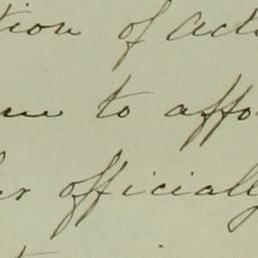 tion of act
to affo
officially